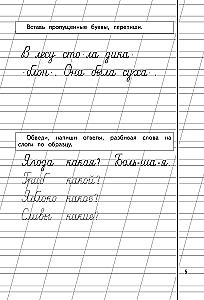 Вставь пропущенные буквы, перепиши.
В лесу сто·ла дика·
·бюн·. Она была суха··.
Обведи, напиши ответы, разбивая слова на
слоги по образцу.
Ягода какая? Боль-ша-я.
Гриб какой?
Яблоко какое?
Сливы какие?
5